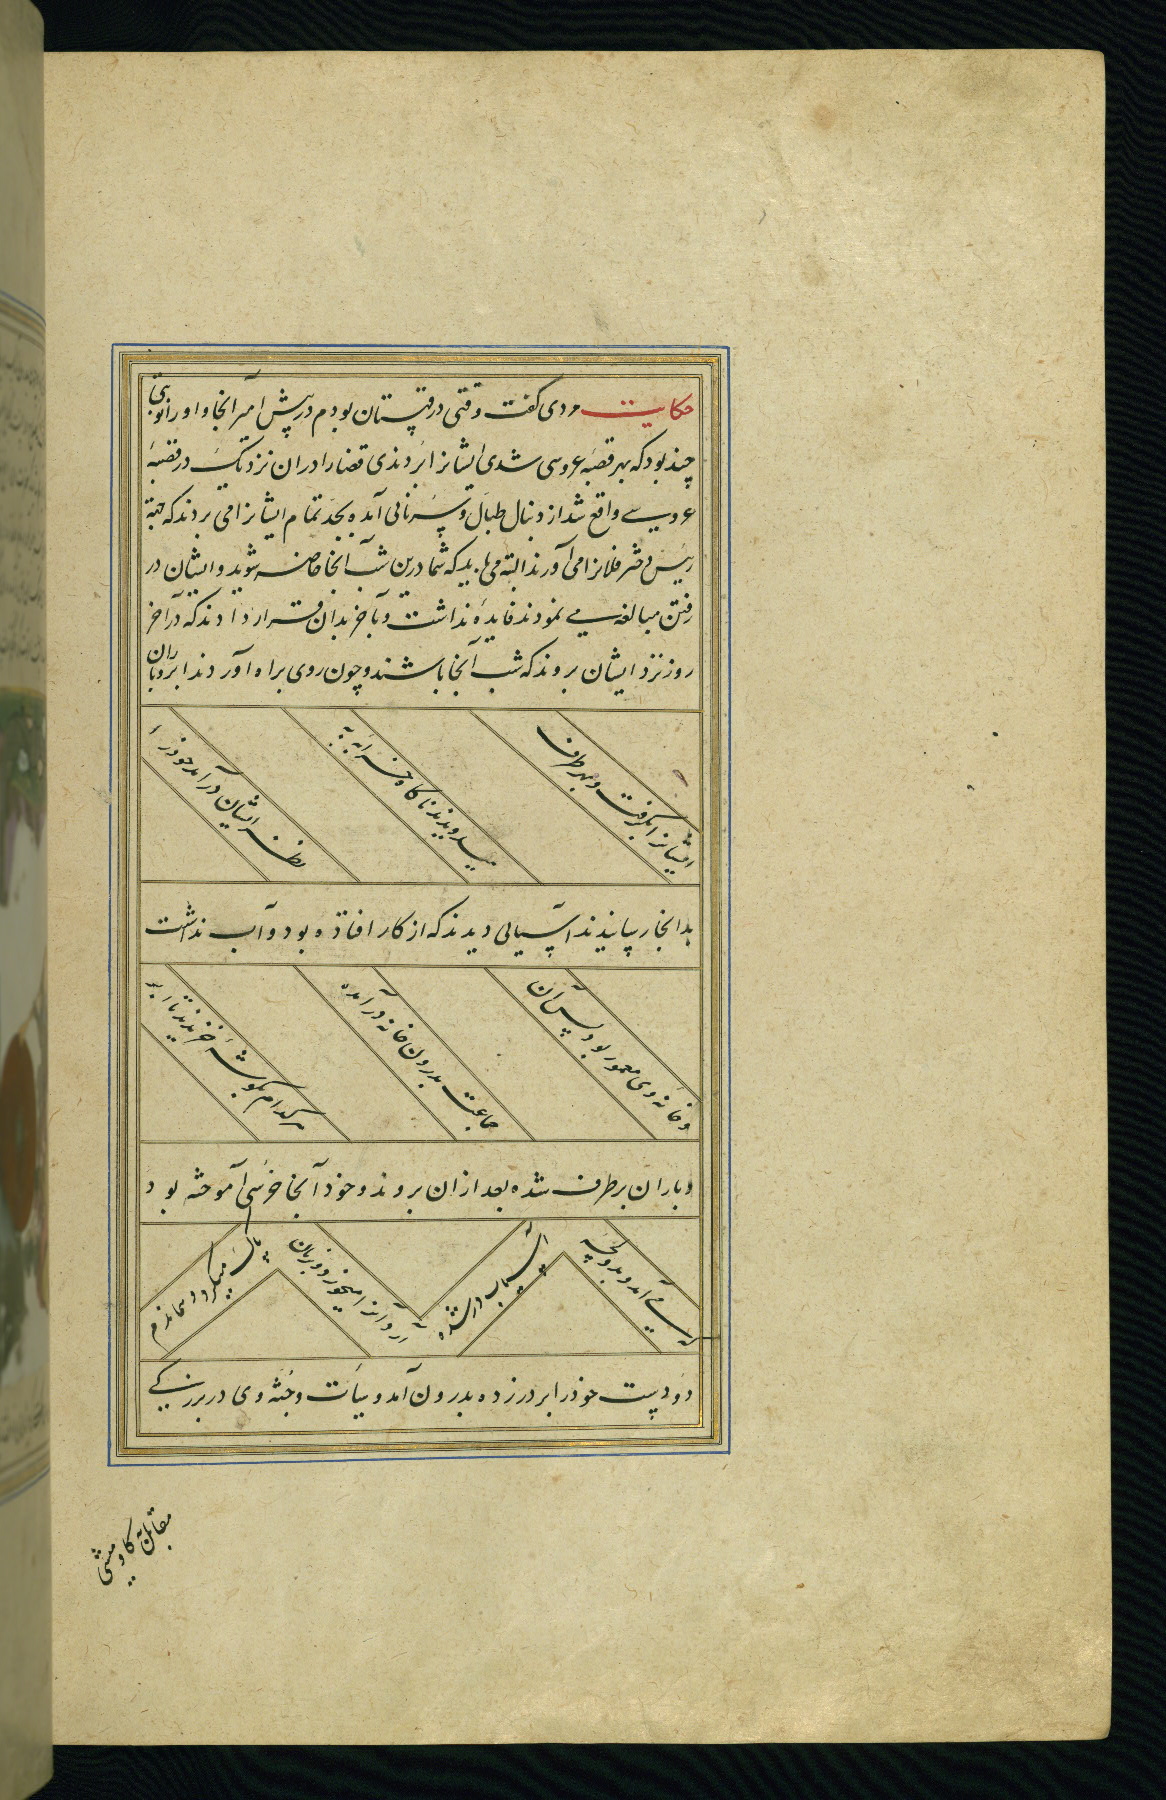 حکایت مردی گفت وقتی در قهستان بودم در پیش امیر آنجا و او را نوبتی
چند بود که بهر قصبه عروسی شدی ایشانرا بردندی قضارا در آن نزدیک در قصبهٔ
عروسی واقع شد از دنبال طبال و سرنائی آمده بجد تمام ایشانرا می بردند که جهة
رئیس دختر فلانرا می آورند البته می باید که شما درین شب آنجا حاضر شوید و ایشان در
رفتن مبالغه می نمودند فایدهٔ نداشت و بآخر بدان قرار دادند که در آخر
روز نزد ایشان بروند که شب آنجا باشند و چون روی براه آوردند ابر و باران
ایشانرا بگرفت و بهر طرف
میدویدند ناگاه خرابهٔ به
نظر ایشان در آمد خود را
بدانجا رسانیدند آسیائی دیدند که از کار افتاده بود و آب نداشت
و خانه وی معمور بود پس آن
جماعت بدرون خانه در آمده
هر کدام بگوشهٔ خزیدند تا ابر
و باران بر طرف شده بعد از آن بروند و خود آنجا خرسی آموخته بود
که می آمد و بدو لخچه
آسیاب در شده
آرد آنرا میخورد و بزبان
پاک میکرد در همان دم
دو دست خود را بر در زده بدرون آمد و هیأت و جثه وی در بزرگی
مقابله گاومیشی